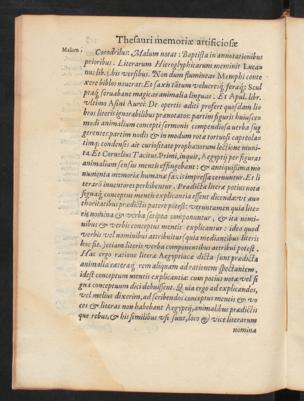 Thesauri memoriæ artificiosæ
Malum.
Corodrillus: Malum notat: Baptista in annotationibus
prioribus. Literarum Hieroglyphicarum meminit Luca
nus lib. 3. his versibus. Non dum flumineas Memphi conte
xere biblos nouerat: Et saxis tātum volucresq; feræq; Scul
ptaq; seruabant magicas animalia linguas. Et Apul. lib.
vltimo Asini Aurei: De opertis aditi profert quosdam li
bros literis ignorabilibus prænotatos: partim figuris huiusce
modi animalium concepti sermonis compendiosa verba sug
gerentes: partim nodis & in modum rotæ tortuosis capreolatim
q; condensis a curiositate prophanorum lectione muni
ta. Et Cornelius Tacitus: Primi, inquit, Aegyptij per figuras
animalium sensus mentis effingebant: & antiquissima mo
numenta memoriæ humanæ saxis impressa cernuntur. Et li
terarū inuentores perhibentur. Prædicta litera potius nota
conceptus mentis explicantia
verba scripta componuntur, & ita nomi
nibus & verbis conceptus mentis explicantur: ideo quod
verbis vel nominibus attribuitur
hoc sit, vt etiam literis verba componentibus attribui potest.
Hac ergo ratione litera Aegyptiaca dicta sunt prædicta
animalia cæteraq; rem aliquam ad rationem spectantem,
idest conceptum mentis explicantia: cum potius nota vel si
gna conceptuum dici debuissent. Quia ergo ad explicandos,
vel melius dixerim, ad scribendos conceptus mentis & vo
ces & literas non habebant Aegyptij, animalibus prædictis
que rebus, & his similibus vsi sunt, loco & vice literarum
nomina